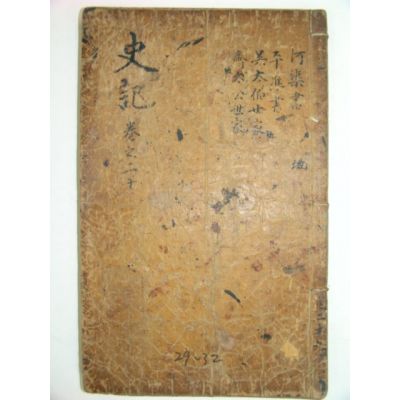 河渠書
平準書
吳太伯世家
齊太公世家
史記
卷之二十
29~32